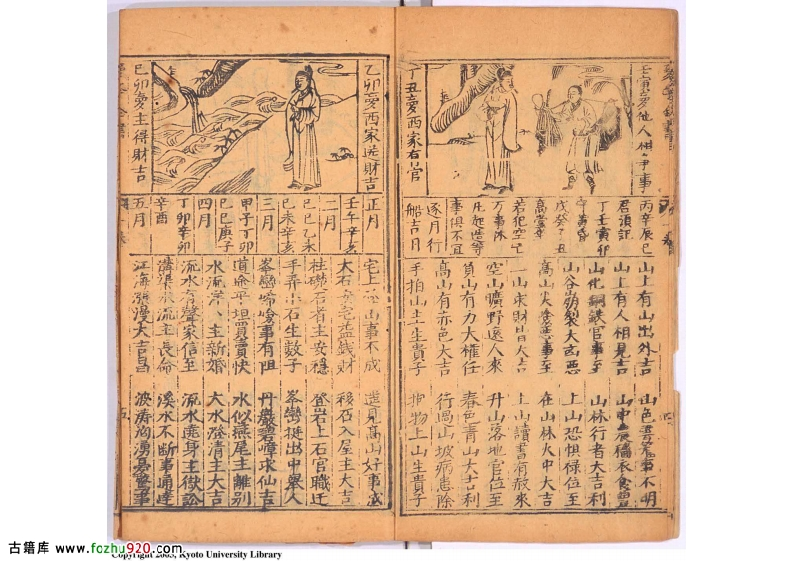 壬寅夢他人相爭事
丁丑夢西家有官
丙辛辰巳
君須記
丁壬寅卯
戊癸子丑
高堂
若犯空亡
万事休
凡起造等
事俱不宜
逐月行
船吉日
山上有山出外吉
山上有人相見吉
山化銅鉄官事至
山谷崩裂大凶惡
高山火燒惡事至
一山求財皆大吉
空山曠野遠人來
負山有力大權任
高山有赤色大吉
手拍山土生貴子
山色
山中農穡衣食豊
山林行者大吉利
上山恐惧禄位至
在山林火中大吉
上山讀書有赦來
升山落地官位至
春色青山大吉利
行過山坡病患除
抱物上山生貴子
乙卯夢西家送財吉
己卯夢主得財吉
正月
壬午辛亥
二月
己巳乙未
己未辛亥
三月
甲子丁卯
己巳庚子
四月
丁卯辛卯
辛酉
五月
宅上
山事不成
大石
益銭財
柱礎石者主安穏
手弄小石生数子
峯巒
峻事有阻
道途平坦買賣快
水流
主新婚
流水有聲家信至
溝渠水流主長命
江海漲漫大吉昌
遠見高山好事成
移石入屋主大吉
登岩上石官職迁
峯巒挺出中舉人
丹巖碧嶂求仙吉
水似燕尾主離別
大水澄清主大吉
流水遶身主獄訟
溪水不断事通達
波濤洶湧憂驚事
古籍库 www.fozhu920.com
Copyright 2003, Kyoto University Library